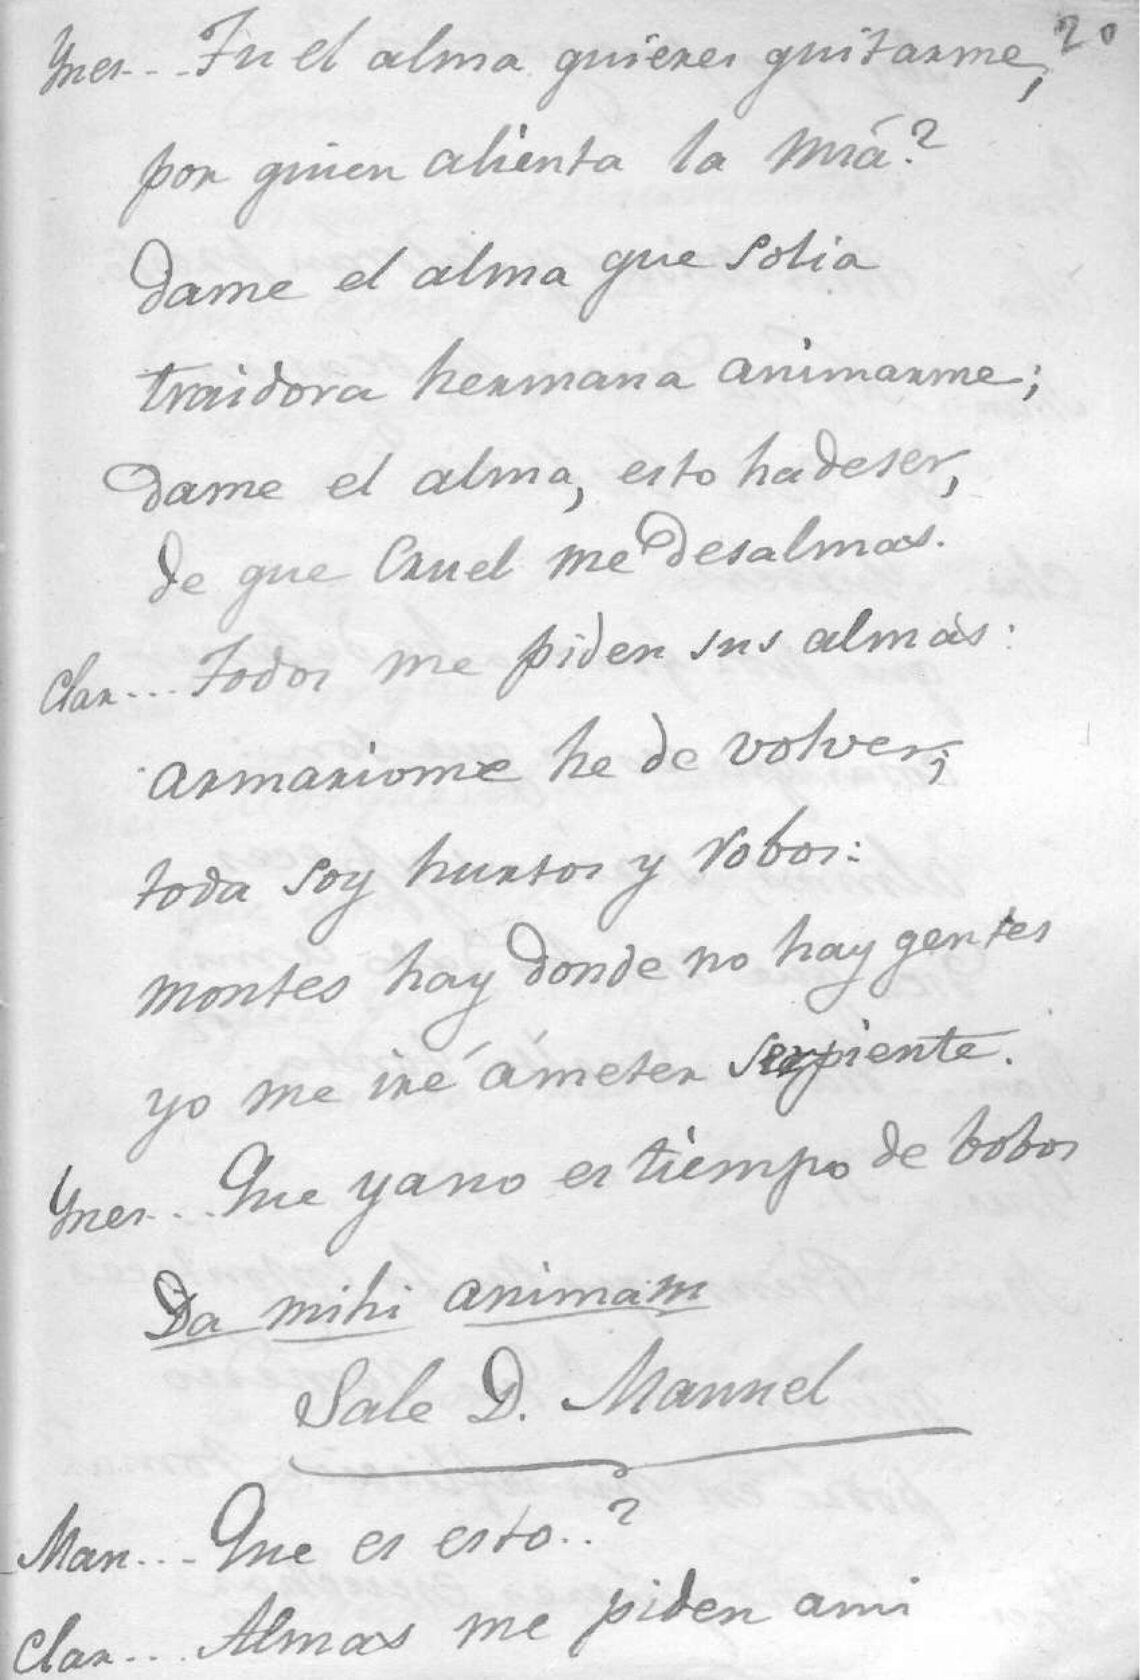 20
Ynes... Tu el alma quieres quitarme,
por quien alienta la mia?
Dame el alma que solia
traidora hermana animarme;
Dame el alma, esto hadeser,
de que Cruel me Desalmas.
Clar... Todos me piden sus almas:
armariome he de volver;
toda soy hurtos y robos:
montes hay donde no hay gentes
yo me iré ámeter serpiente.
Ynes... Que yano es tiempo de bobos
Da mihi animam
Sale D. Manuel
Man... Que es esto..?
Clar... Almas me piden ami